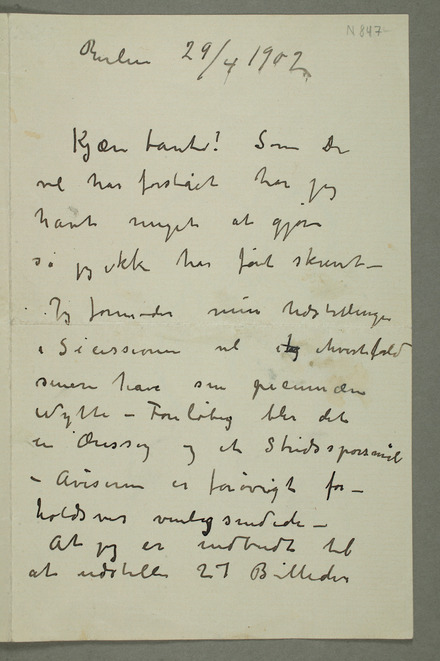 N 847
Berlin 29/4 1902
Kjære tante! Som De
vel har forstået har jeg
havt meget at gjøre
så jeg ikke har fåt skrevet –
Jeg formoder min Udstilling
i Secessionen vil i hvertfald
senere have sin pecuniære
Nytte – Foreløbig blir det
en Ære og et Stridsspørsmål
– Aviserne er forøvrigt for-
holdsvis venligsindede –
At jeg er indbudt til
at udstille 27 Billeder